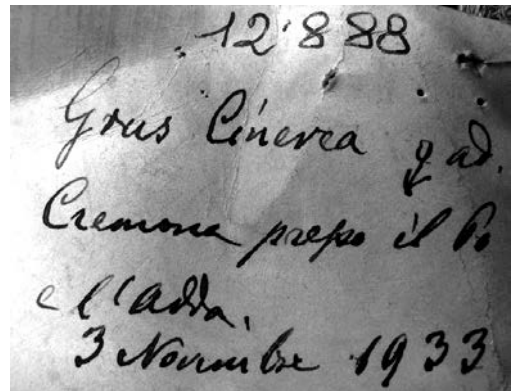 12.888
Grus Cinerea ♀ ad.
Cremona presso il Po
e l'Adda.
3 Novembre 1933